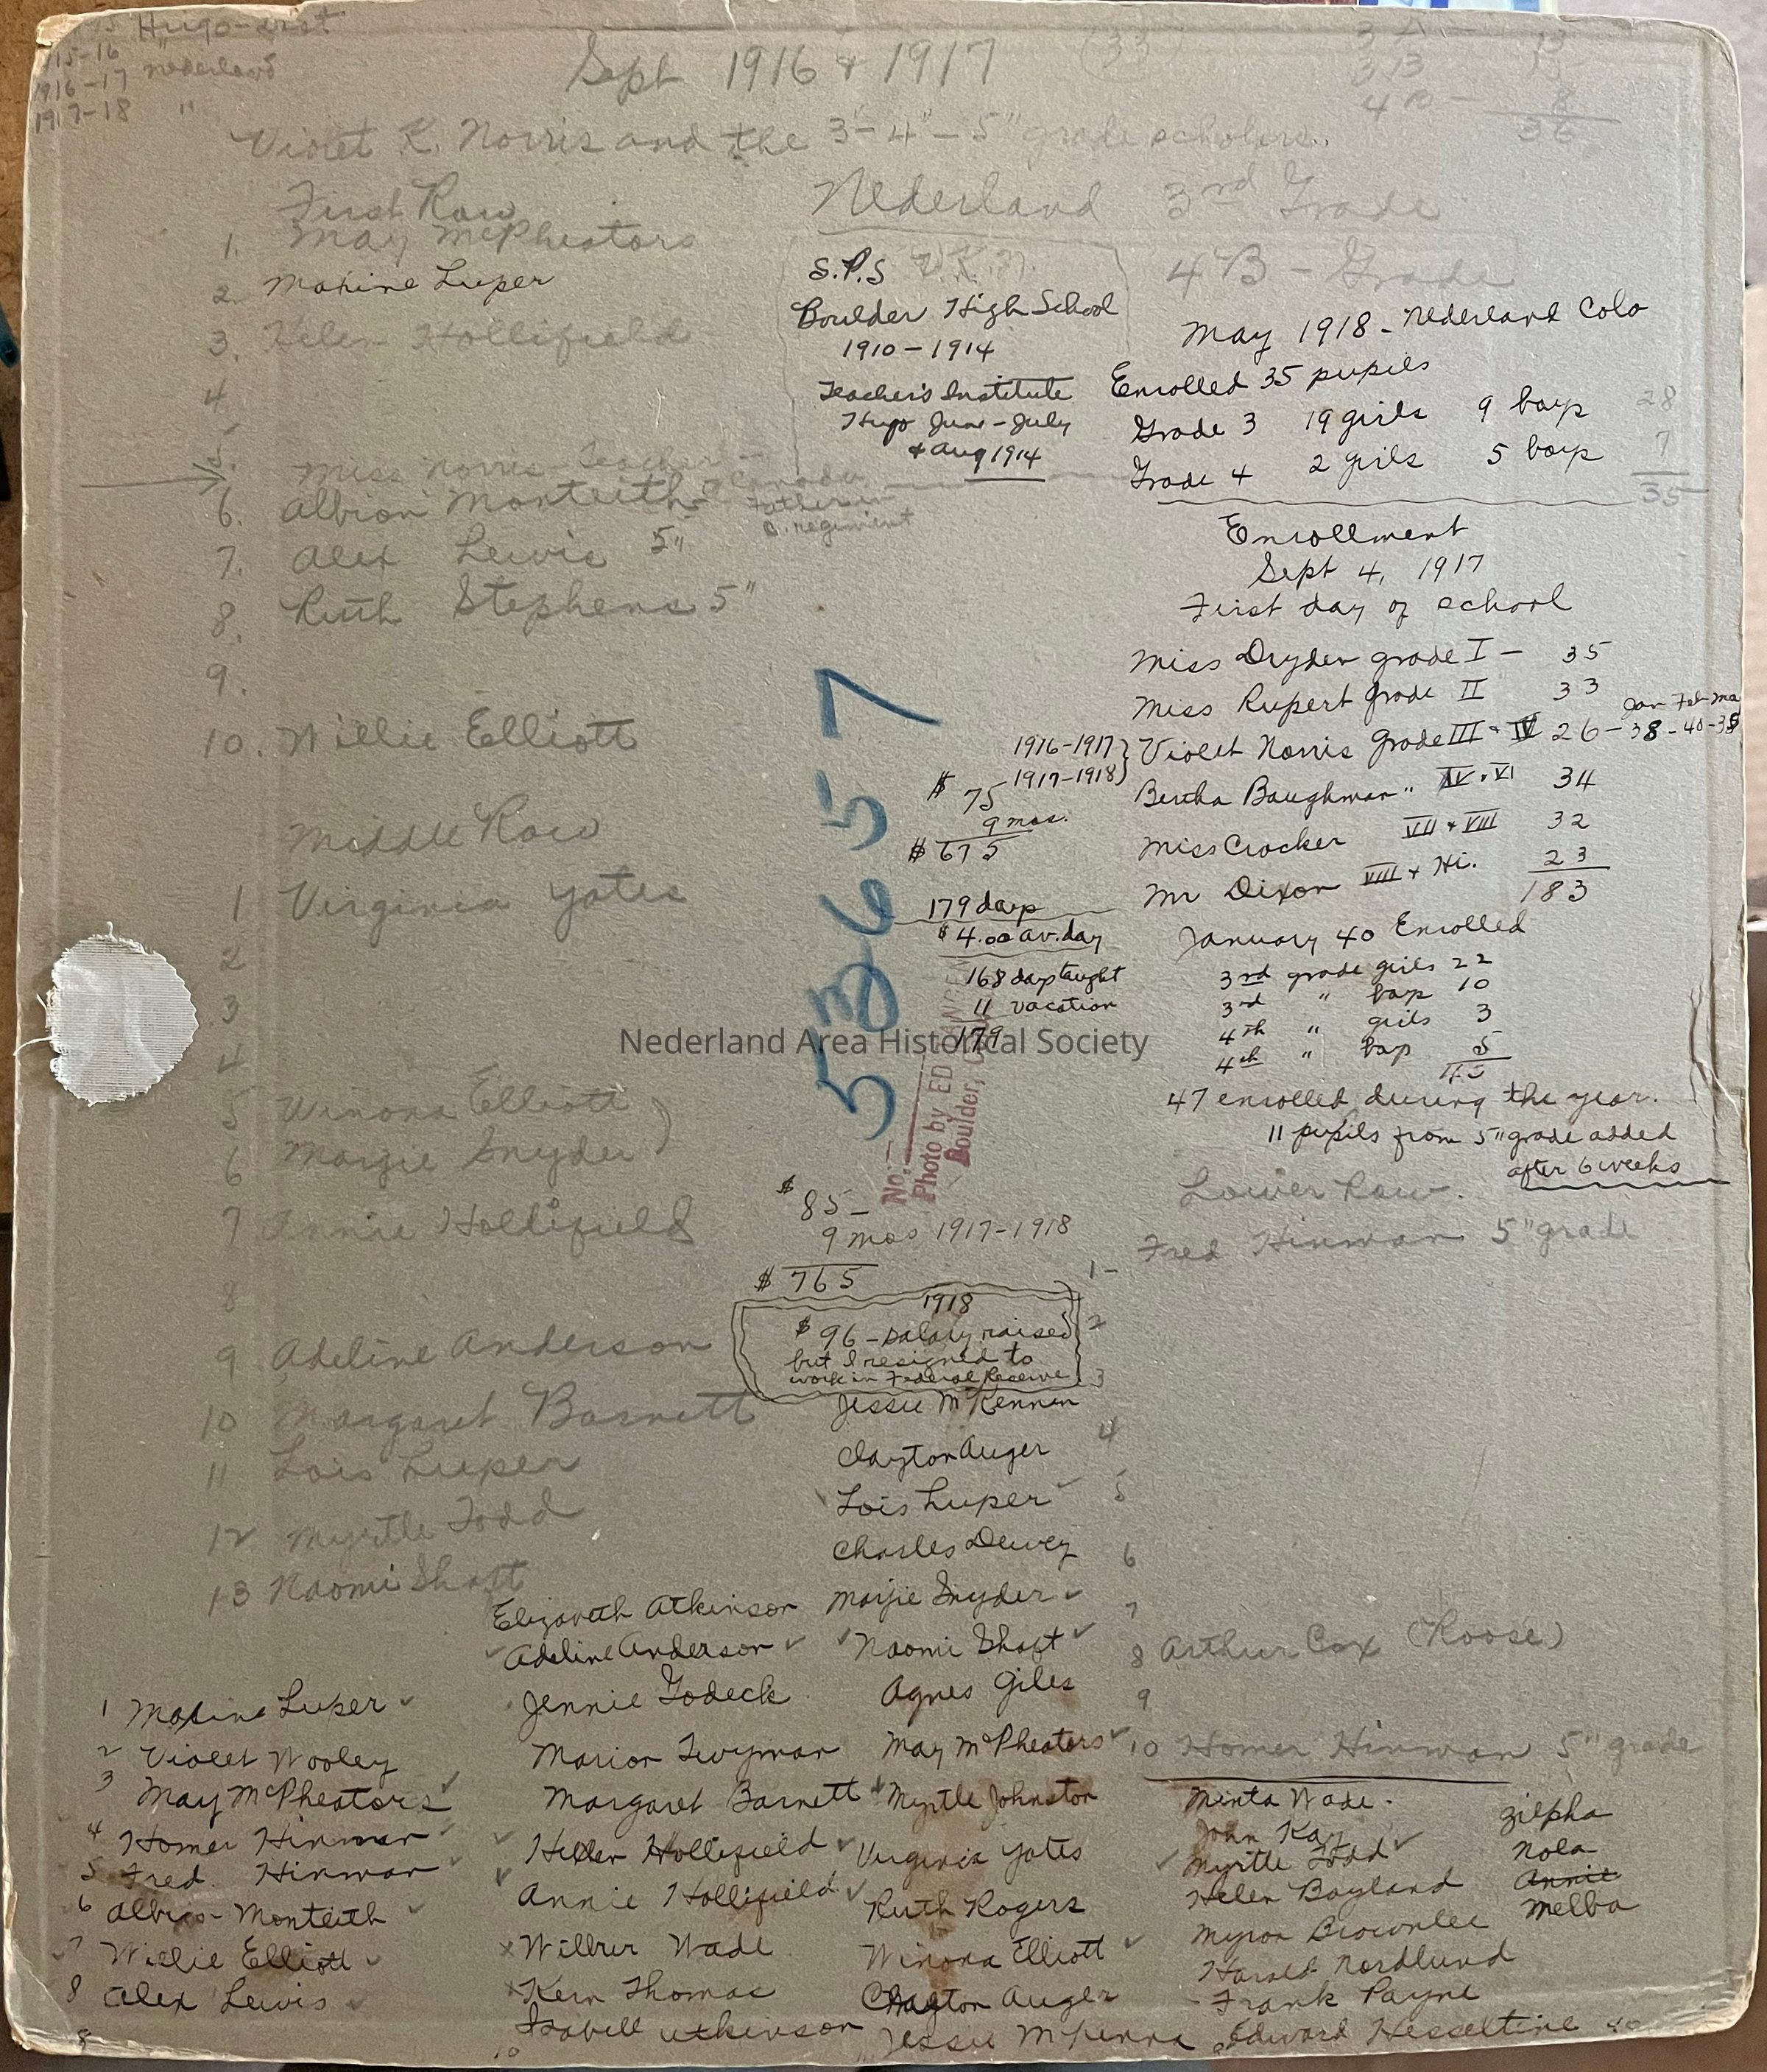 Hugo-
15-16
1916-17 Nederland
1917-18 "
Sept 1916 & 1917 (33)
3 A - 13
3 B
4 - 8
36
Violet K. Norris and the 3"-4"-5" grade scholars..
First Row
1. May McPheators
2. Maxine Luper
3. Helen Hollifield
4
5.
Miss Norris teacher
6. Albion Monteith - Canada
Father in
C. regiment
7. Alex Lewis 5"
8. Ruth Stephens 5"
9.
10. Willie Elliott
Middle Row
1 Virginia Yates
2
3
4
5 Winona Elliott
6 Margie Snyder
7 Annie Hollifield
8
9 Adeline Anderson
10 Margaret Barnett
11 Lois Luper
12 Myrtle Todd
13 Naomi Shaft
Nederland 3rd Grade
4B - Grade
S.P.S V.K.N.
Boulder High School
1910-1914
Teacher's Institute
Hugo June-July
& Aug 1914
May 1918 - Nederland Colo
Enrolled 35 pupils
Grade 3 19 girls 9 boys 28
Grade 4 2 girls 5 boys 7
35
Enrollment
Sept 4, 1917
First day of school
Miss Dryden grade I - 35
Miss Rupert grade II 33
Jan Feb Ma
1916-1917 } Violet Norris Grade III & IV 26-38-40-38
1917-1918 }
Bertha Baughman " IV & VI 34
Miss Crocker VII & VIII 32
Mr Dixon VIII & Hi. 23
183
$ 75
9 mos.
$ 675
179 days
$ 4.00 av. day
168 days taught
11 vacation
179
January 40 Enrolled
3rd grade girls 22
3rd " boys 10
4th " girls 3
4th " boys 5
47 enrolled during the year.
11 pupils from 5" grade added
after 6 weeks
53657
No.
Photo by ED
Boulder,
Nederland Area Historical Society
$ 85-
9 mos 1917-1918
$ 765
1918
$ 96 - salary raised
but I resigned to
work in Federal Reserve
Lower Row.
1- Fred Hinman 5" grade
2
3
4
5
6
7
8 Arthur Cox (Roose)
9
10 Homer Hinman 5" grade
Jessie McKennin
Clayton Auger
Lois Luper
Charles Dewey
Marjie Snyder
Naomi Shaft
Agnes Giles
May McPheators
Myrtle Johnston
Virginia Yates
Ruth Rogers
Winona Elliott
Clayton Auger
Jessie McKenna
Elizabeth Atkinson
Adeline Anderson
Jennie Godeck
Marion Twyman
Margaret Barnett
Hellen Hollifield
Annie Hollifield
Wilbur Wade
Kern Thomas
Isabell Atkinson
10
1 Maxine Luper
2 Violet Wooley
3 May McPheators
4 Homer Hinman
5 Fred Hinman
6 Albion Monteith
7 Willie Elliott
8 Alex Lewis
8
Minta Wade.
John Kay
Myrtle Todd
Helen Boyland
Myron Brownlee
Harold Nordlund
Frank Payne
Edward Hesseltine 40
Zilpha
Nola
Annie
Melba